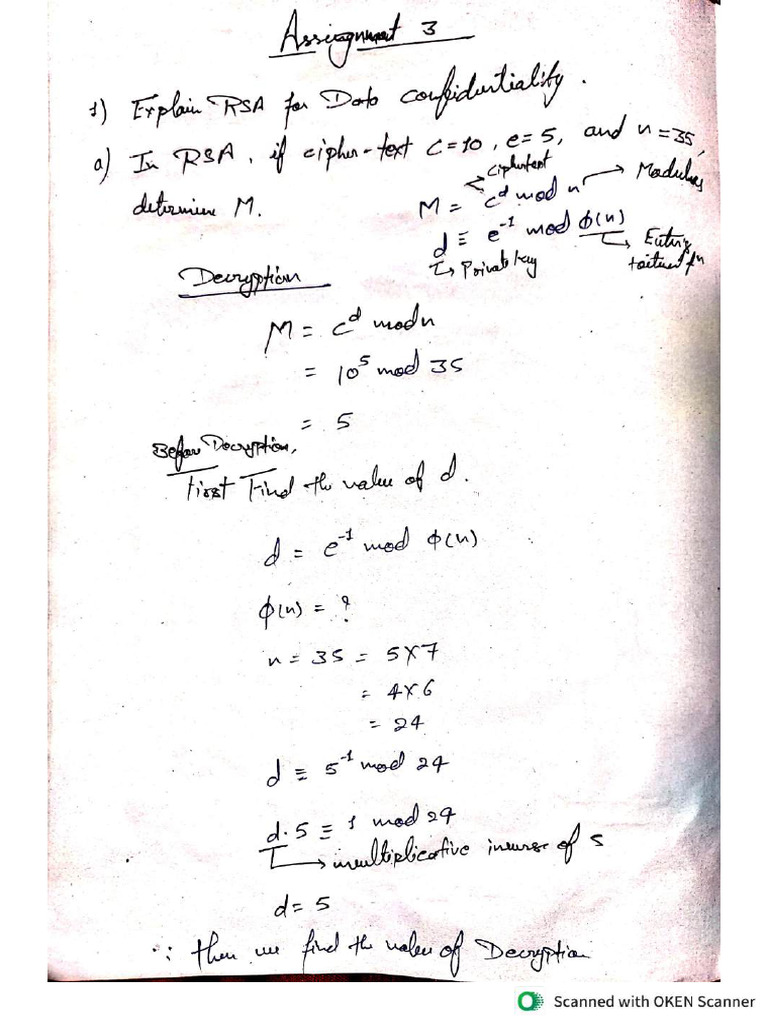 Assignment 3
1) Explain RSA for Data confidentiality.
a) In RSA, if cipher-text C=10, e=5, and n=35,
determine M.
ciphertext
M = c^d mod n → Modulus
d ≡ e^-1 mod φ(n)
↳ Private key
↳ Eulers
totient fn
Decryption
M = c^d mod n
= 10^5 mod 35
= 5
Before Decryption,
First Find the value of d.
d = e^-1 mod φ(n)
φ(n) = ?
n = 35 = 5×7
= 4×6
= 24
d ≡ 5^-1 mod 24
d.5 ≡ 1 mod 24
↳ multiplicative inverse of 5
d = 5
∴ then we find the value of Decryption
Scanned with OKEN Scanner